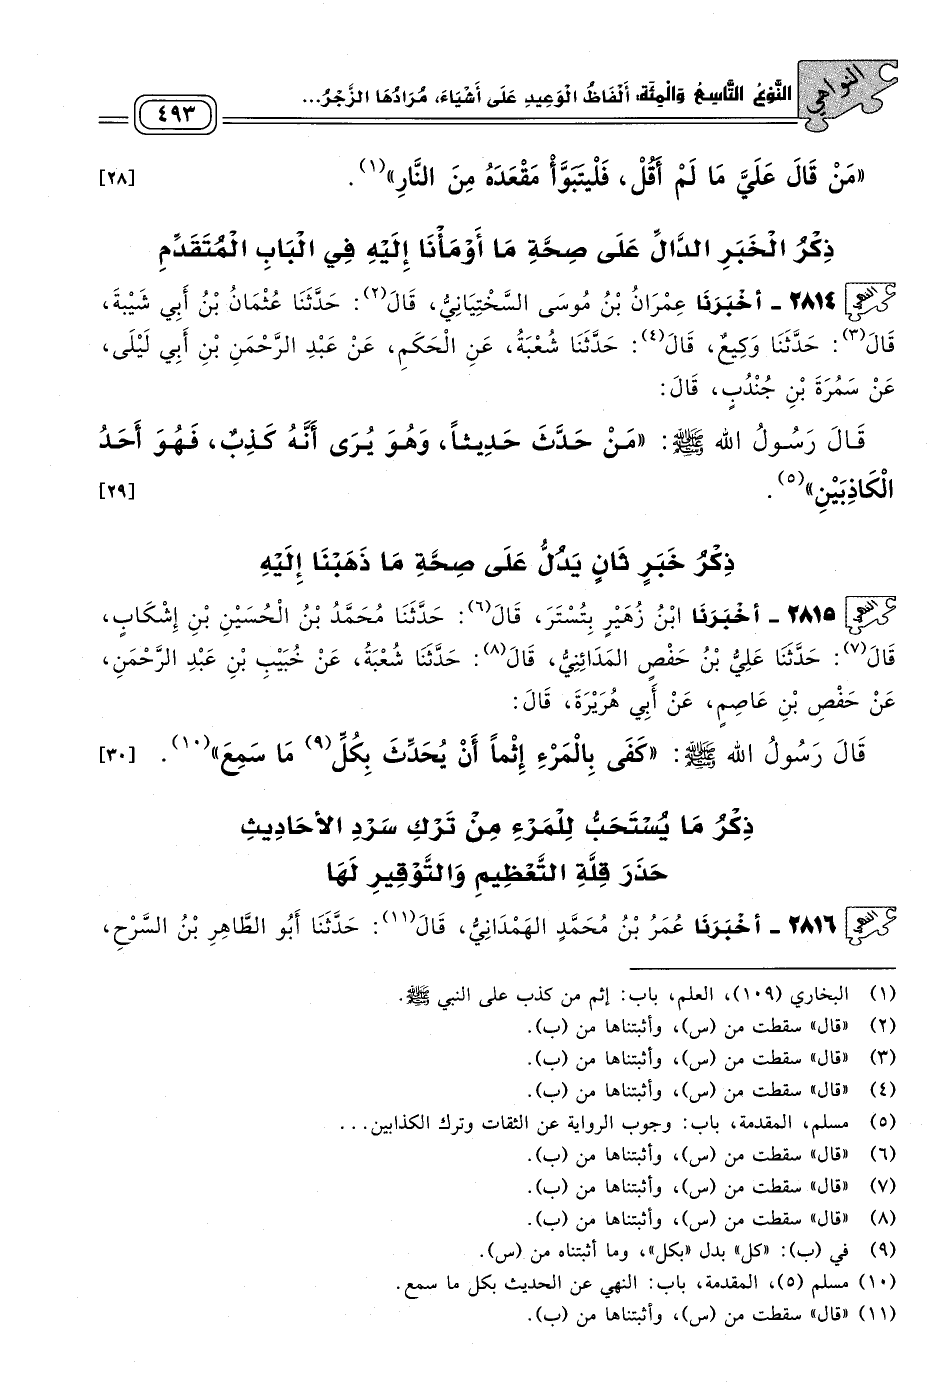 النواهي
النَّوْعُ التَّاسِعُ وَالْمِئَة: أَلْفَاظُ الْوَعِيدِ عَلَى أَشْيَاءَ، مُرَادُهَا الزَّجْرُ...
٤٩٣
«مَنْ قَالَ عَلَيَّ مَا لَمْ أَقُلْ، فَلْيَتَبَوَّأْ مَقْعَدَهُ مِنَ النَّارِ»(١). [٢٨]
ذِكْرُ الْخَبَرِ الدَّالِّ عَلَى صِحَّةِ مَا أَوْمَأْنَا إِلَيْهِ فِي الْبَابِ الْمُتَقَدِّمِ
٢٨١٤ - أَخْبَرَنَا عِمْرَانُ بْنُ مُوسَى السَّخْتِيَانِيُّ، قَالَ(٢): حَدَّثَنَا عُثْمَانُ بْنُ أَبِي شَيْبَةَ،
قَالَ(٣): حَدَّثَنَا وَكِيعٌ، قَالَ(٤): حَدَّثَنَا شُعْبَةُ، عَنِ الْحَكَمِ، عَنْ عَبْدِ الرَّحْمَنِ بْنِ أَبِي لَيْلَى،
عَنْ سَمُرَةَ بْنِ جُنْدُبٍ، قَالَ:
قَالَ رَسُولُ الله ﷺ: «مَنْ حَدَّثَ حَدِيثاً، وَهُوَ يُرَى أَنَّهُ كَذِبٌ، فَهُوَ أَحَدُ
الْكَاذِبَيْنِ»(٥). [٢٩]
ذِكْرُ خَبَرٍ ثَانٍ يَدُلُّ عَلَى صِحَّةِ مَا ذَهَبْنَا إِلَيْهِ
٢٨١٥ - أَخْبَرَنَا ابْنُ زُهَيْرٍ بِتُسْتَرَ، قَالَ(٦): حَدَّثَنَا مُحَمَّدُ بْنُ الْحُسَيْنِ بْنِ إِشْكَابٍ،
قَالَ(٧): حَدَّثَنَا عَلِيُّ بْنُ حَفْصٍ المَدَائِنِيُّ، قَالَ(٨): حَدَّثَنَا شُعْبَةُ، عَنْ خُبَيْبِ بْنِ عَبْدِ الرَّحْمَنِ،
عَنْ حَفْصِ بْنِ عَاصِمٍ، عَنْ أَبِي هُرَيْرَةَ، قَالَ:
قَالَ رَسُولُ الله ﷺ: «كَفَى بِالْمَرْءِ إِثْماً أَنْ يُحَدِّثَ بِكُلِّ(٩) مَا سَمِعَ»(١٠). [٣٠]
ذِكْرُ مَا يُسْتَحَبُّ لِلْمَرْءِ مِنْ تَرْكِ سَرْدِ الأَحَادِيثِ
حَذَرَ قِلَّةِ التَّعْظِيمِ وَالتَّوْقِيرِ لَهَا
٢٨١٦ - أَخْبَرَنَا عُمَرُ بْنُ مُحَمَّدٍ الهَمْدَانِيُّ، قَالَ(١١): حَدَّثَنَا أَبُو الطَّاهِرِ بْنُ السَّرْحِ،
(١) البخاري (١٠٩)، العلم، باب: إثم من كذب على النبي ﷺ.
(٢) «قال» سقطت من (س)، وأثبتناها من (ب).
(٣) «قال» سقطت من (س)، وأثبتناها من (ب).
(٤) «قال» سقطت من (س)، وأثبتناها من (ب).
(٥) مسلم، المقدمة، باب: وجوب الرواية عن الثقات وترك الكذابين...
(٦) «قال» سقطت من (س)، وأثبتناها من (ب).
(٧) «قال» سقطت من (س)، وأثبتناها من (ب).
(٨) «قال» سقطت من (س)، وأثبتناها من (ب).
(٩) في (ب): «كل» بدل «بكل»، وما أثبتناه من (س).
(١٠) مسلم (٥)، المقدمة، باب: النهي عن الحديث بكل ما سمع.
(١١) «قال» سقطت من (س)، وأثبتناها من (ب).